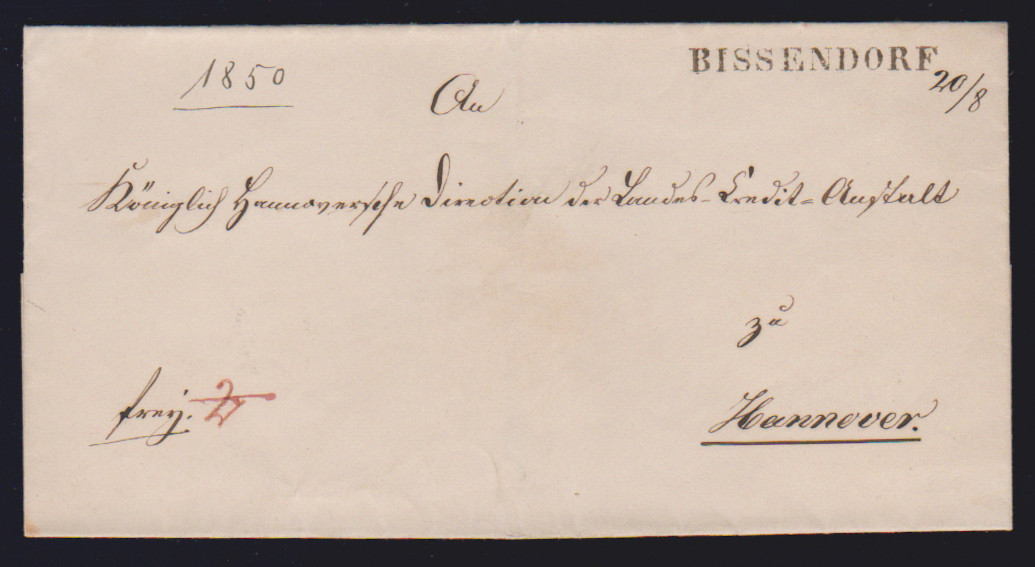 BISSENDORF
1850
20/8
An
Königlich Hannoversche Direction der Landes-Credit-Anstalt
zu
frey.
Hannover.